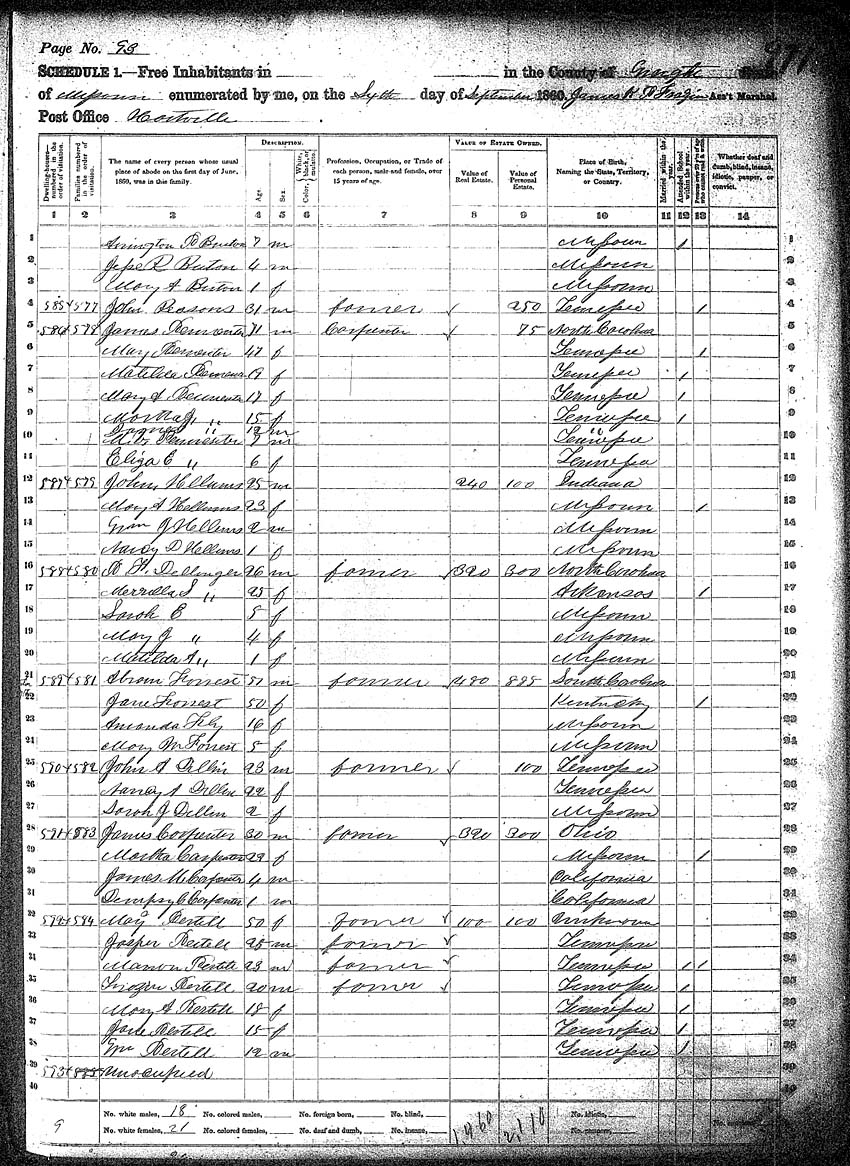 Page No. 93
SCHEDULE 1.—Free Inhabitants in in the County of State
of Missouri enumerated by me, on the day of September 1860. James Ass't Marshal.
Post Office Hartville
DESCRIPTION. VALUE OF ESTATE OWNED.
Dwelling-houses—numbered in the order of visitation. Families numbered in the order of visitation. The name of every person whose usual place of abode on the first day of June, 1860, was in this family. Age. Sex. Color, White, black, or mulatto. Profession, Occupation, or Trade of each person, male and female, over 15 years of age. Value of Real Estate. Value of Personal Estate. Place of Birth, Naming the State, Territory, or Country. Married within the year. Attended School within the year. Persons over 20 y'rs of age who cannot read & write. Whether deaf and dumb, blind, insane, idiotic, pauper, or convict.
1 2 3 4 5 6 7 8 9 10 11 12 13 14
1 Burton 7 m Missouri 1 1
2 Jesse R Burton 4 m Missouri 2
3 Mary A Burton 1 f Missouri 3
4 585 577 John 31 m farmer 250 Tennessee 1 4
5 586 578 James 71 m Carpenter 75 North Carolina 5
6 Mary 47 f Tennessee 1 6
7 Matilda 19 f Tennessee 1 7
8 Mary A 17 f Tennessee 1 8
9 Martha J " 15 f Tennessee 1 9
James " 12 m "
10 7 m Tennessee 10
11 Eliza E " 6 f Tennessee 11
12 587 579 John Hellums 25 m 240 100 Indiana 12
13 Mary A Hellums 23 f Missouri 1 13
14 Wm J Hellums 2 m Missouri 14
15 Nancy D Hellums 1 f Missouri 15
16 588 580 Dellinger 26 m farmer 320 300 North Carolina 16
17 Merrilla S " 25 f Arkansas 1 17
18 Sarah E 5 f Missouri 18
19 Mary J " 4 f Missouri 19
20 Matilda A " 1 f Missouri 20
21 589 581 Abram Forrest 51 m farmer 480 885 South Carolina 21
22 Jane Forrest 50 f Kentucky 1 22
23 Amanda 16 f Missouri 23
24 Mary M Forrest 5 f Missouri 24
25 590 582 John A Dillin 23 m farmer 100 Tennessee 25
26 Nancy A Dillin 22 f Tennessee 26
27 Sarah J Dillin 2 f Missouri 27
28 591 583 James Carpenter 30 m farmer 320 300 Ohio 28
29 Martha Carpenter 29 f Missouri 1 29
30 James M Carpenter 4 m California 30
31 Dempsy C Carpenter 1 m California 31
32 592 584 Mary Bertell 50 f farmer 100 100 Unknown 32
33 Jasper Bertell 25 m farmer Tennessee 33
34 Marion Bertell 23 m farmer Tennessee 1 1 34
35 Bertell 20 m farmer Tennessee 1 35
36 Mary A Bertell 18 f Tennessee 1 36
37 Jane Bertell 15 f Tennessee 1 37
38 Wm Bertell 12 m Tennessee 1 38
39 593 585 Unoccupied 39
40 40
No. white males, 18 No. colored males, No. foreign born, No. blind, No. idiotic,
9 No. white females, 21 No. colored females, No. deaf and dumb, No. insane, 1960